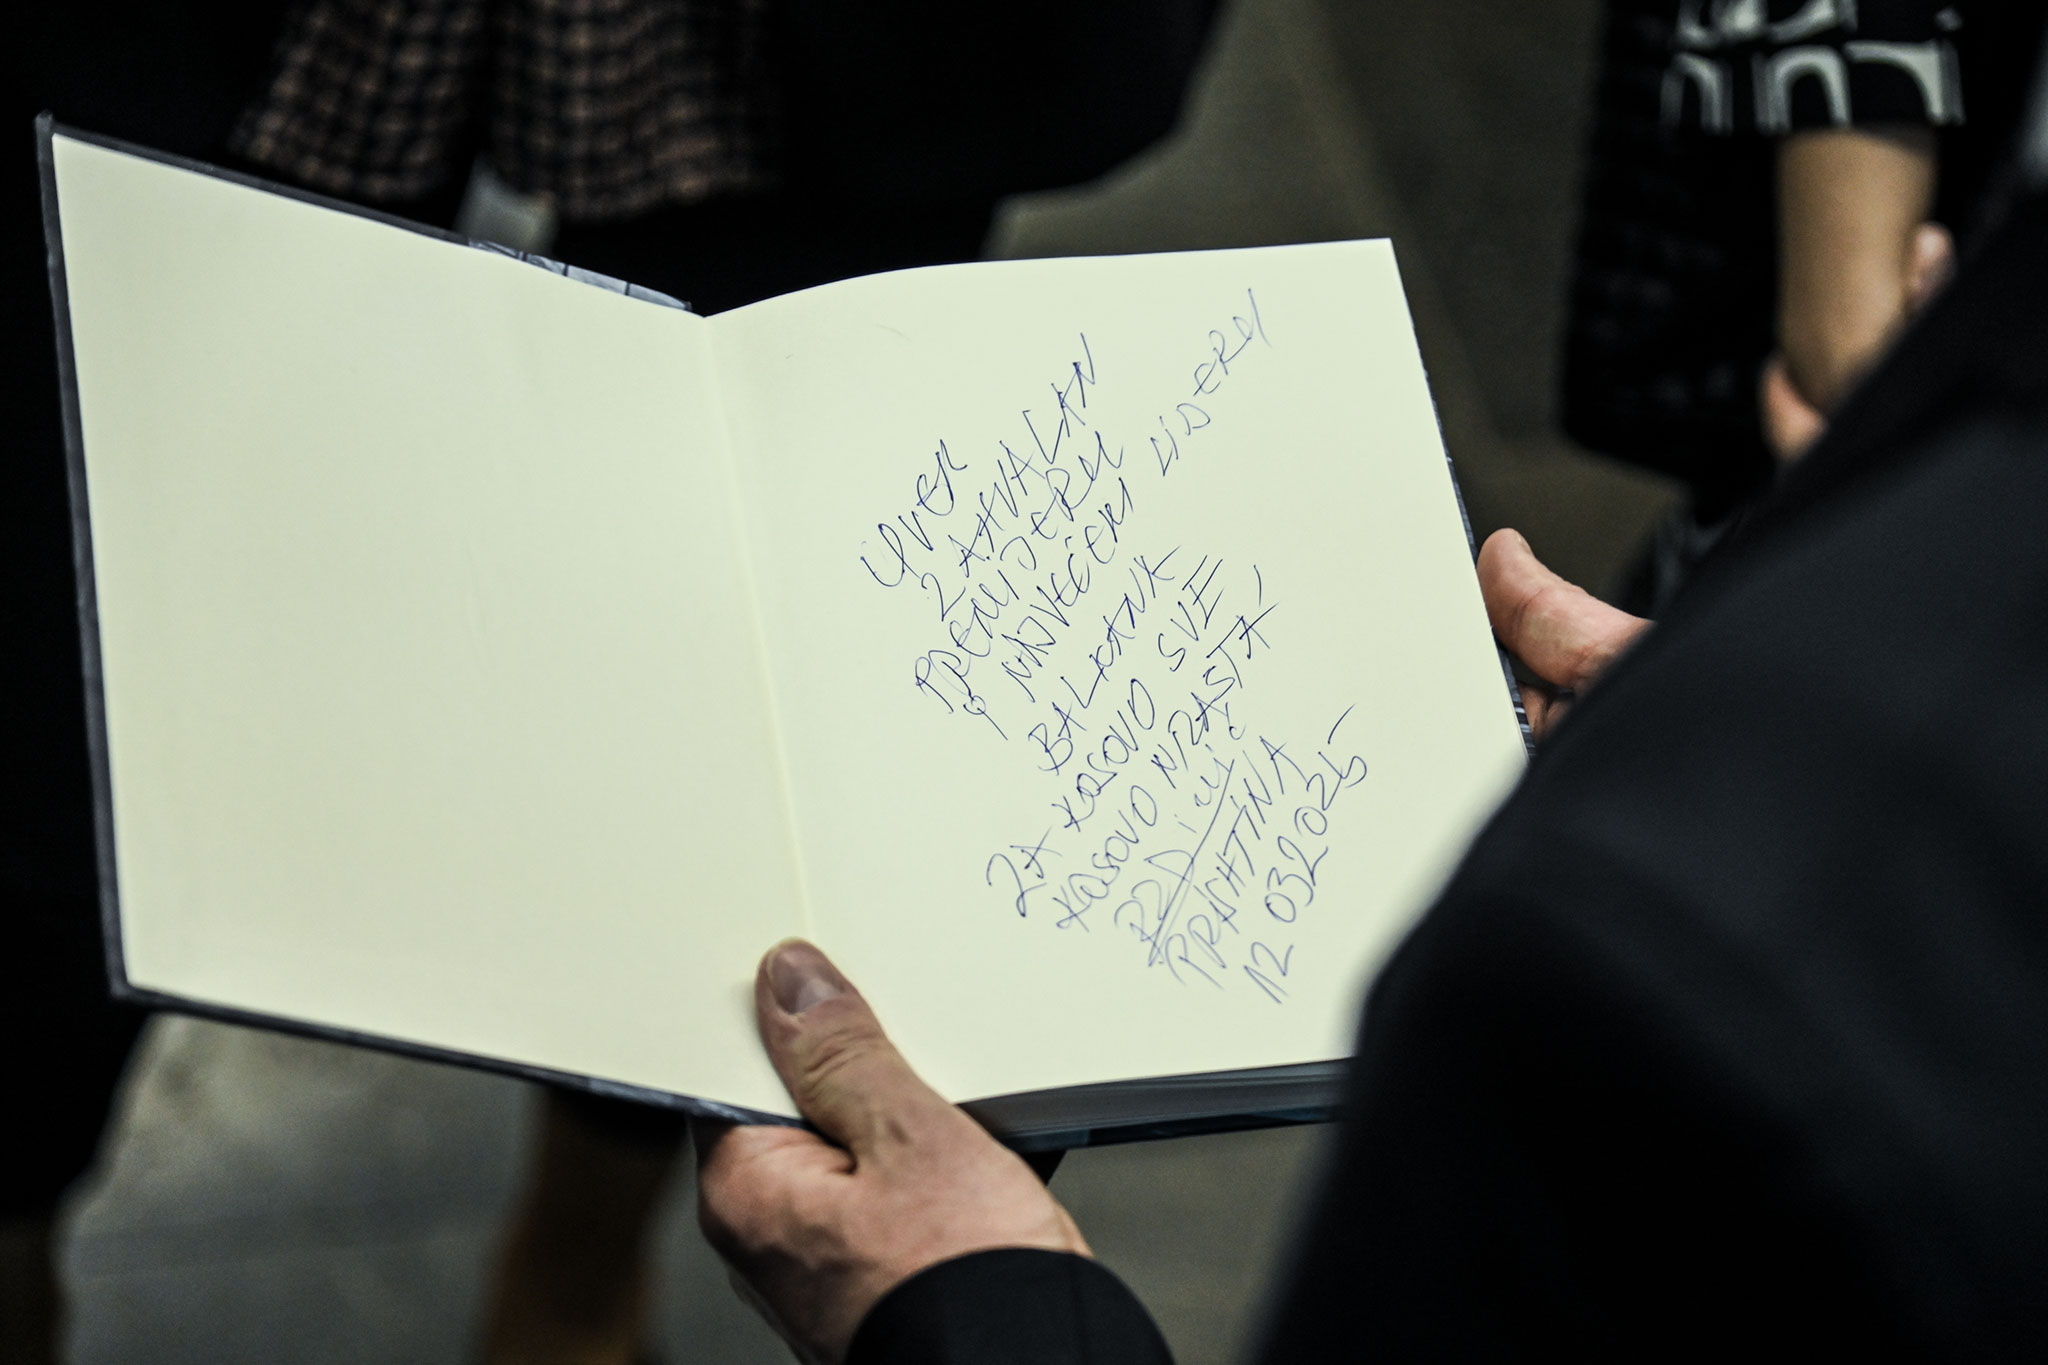 UVEK
ZAHVALAN
PREMIJERU
NAJVEĆEM LIDERU
BALKANA
ZA KOSOVO SVE
KOSOVO NIZAŠTA
PRISHTINA
12 03 2025